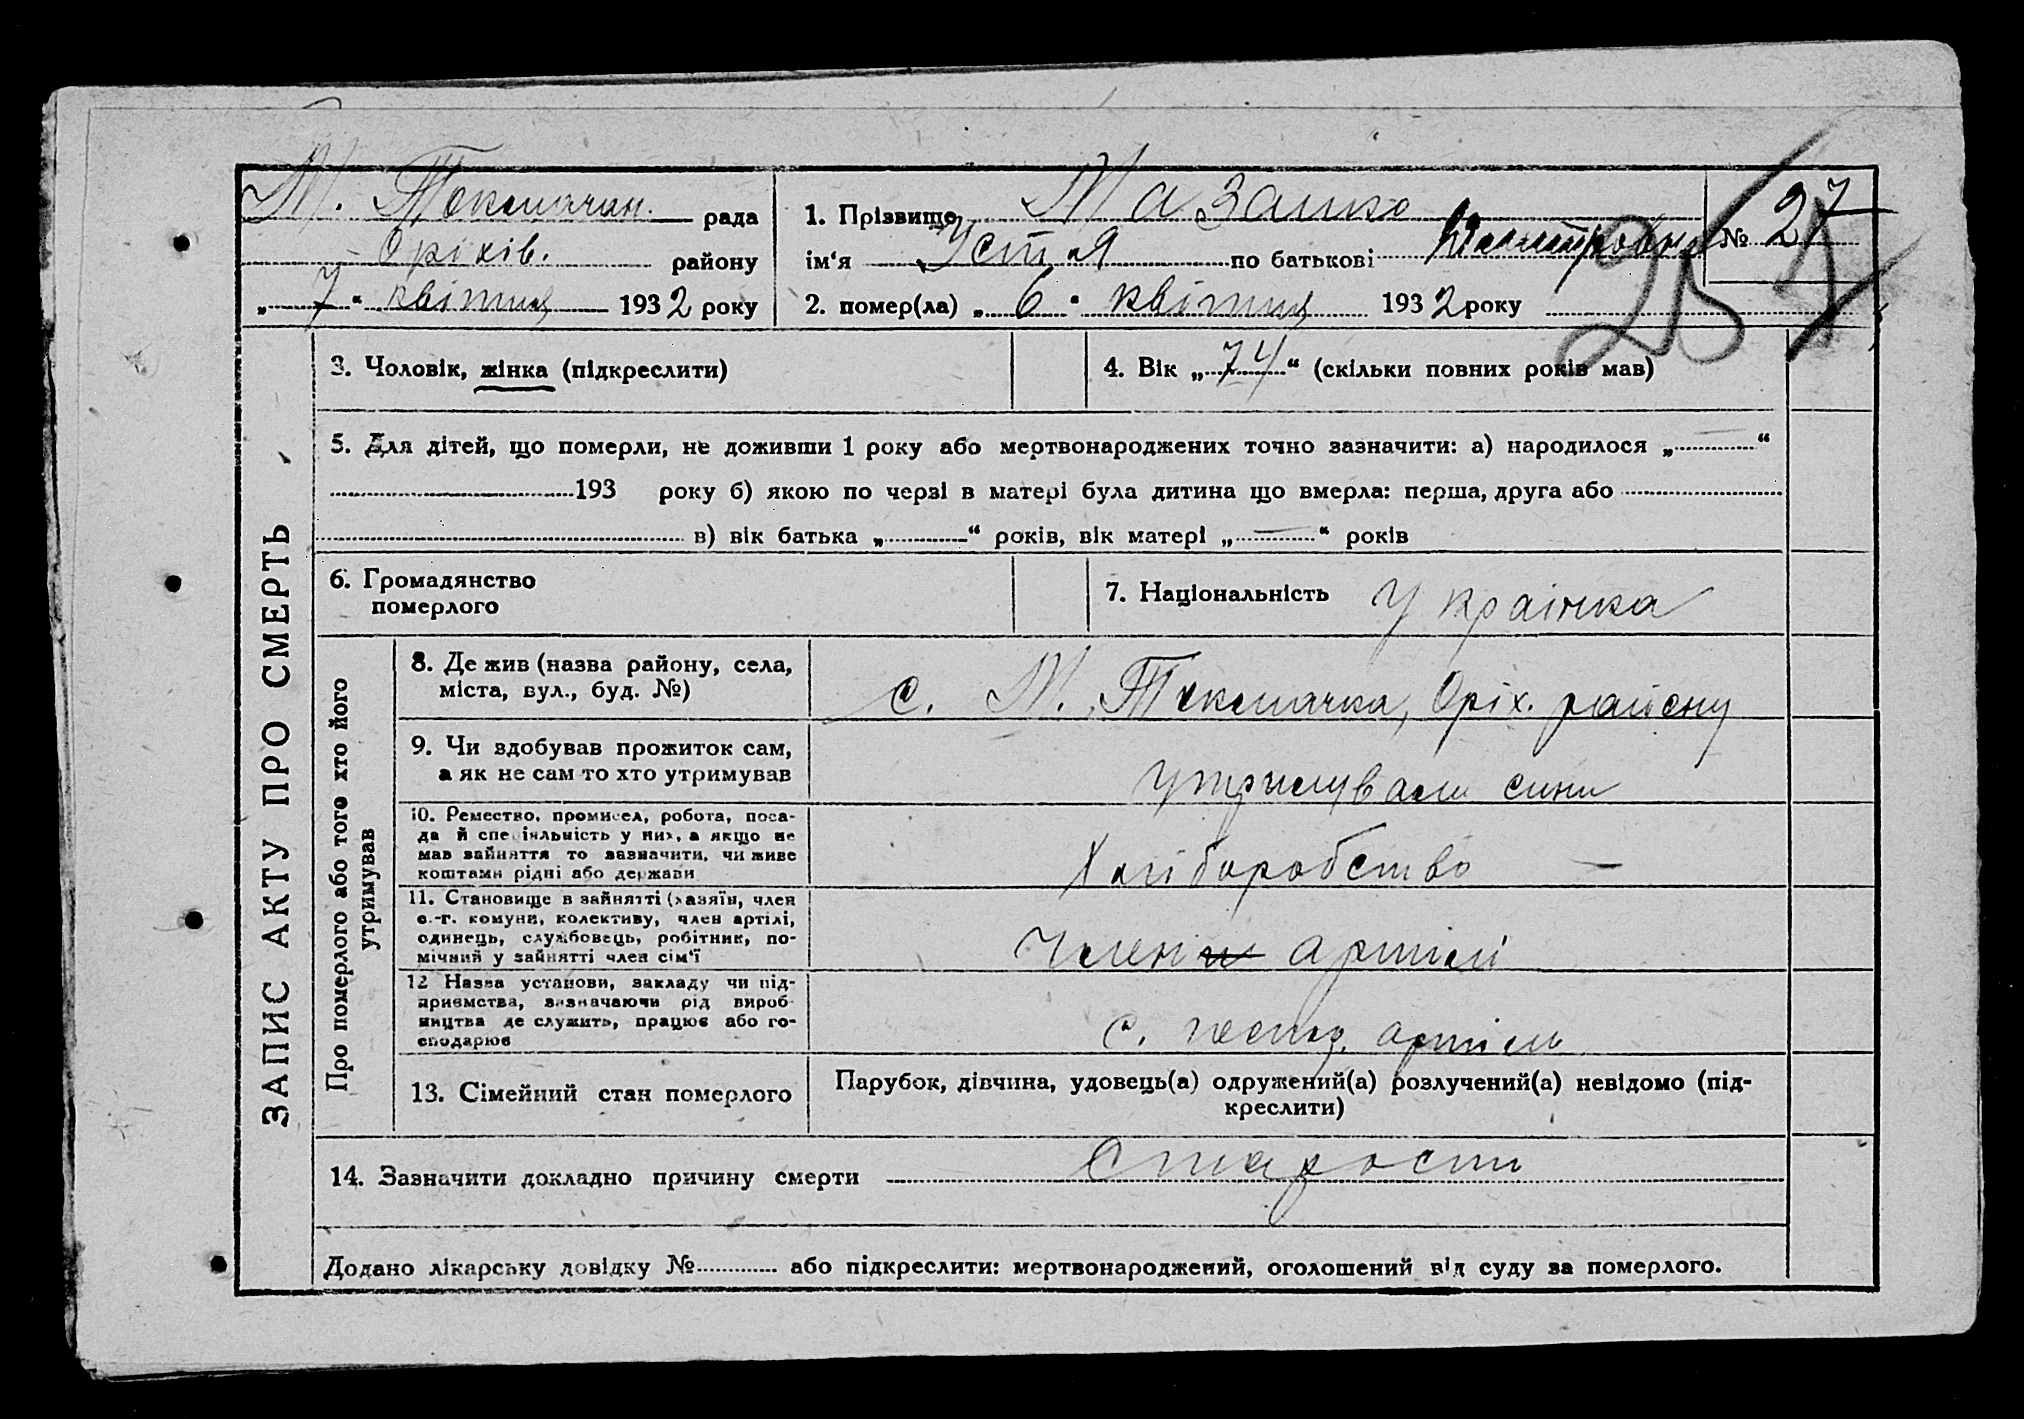 М. Токмачан. рада
Оріхів. району
„ 7 “ квітня 1932 року
1. Прізвище Мазанко
ім‘я Устя по батькові Дмитровна
2. помер(ла) „ 6 “ квітня 1932 року
№ 27
25
ЗАПИС АКТУ ПРО СМЕРТЬ
3. Чоловік, жінка (підкреслити)
4. Вік „ 74 “ (скільки повних років мав)
5. Для дітей, що померли, не доживши 1 року або мертвонароджених точно зазначити: а) народилося „ — “
193 року б) якою по черзі в матері була дитина що вмерла: перша, друга або
в) вік батька „ “ років, вік матері „ — “ років
6. Громадянство
померлого
7. Національність Українка
Про померлого або того хто його
утримував
8. Де жив (назва району, села,
міста, вул., буд. №)
с. М. Токмачка, Оріх. району
9. Чи здобував прожиток сам,
а як не сам то хто утримував
утримували сини
10. Ремество, промисел, робота, поса-
да й спеціяльність у них, а якщо не
мав зайняття то зазначити, чи живе
коштами рідні або держави
Хліборобство —
11. Становище в зайнятті (хазяїн, член
с.-г. комуни, колективу, член артілі,
одинець, службовець, робітник, по-
мічний у зайнятті член сім‘ї
член артілі
12 Назва установи, закладу чи під-
приємства, зазначаючи рід вироб-
ництва де служить, працює або го-
сподарює
с. господ. артіль
13. Сімейний стан померлого
Парубок, дівчина, удовець(а) одружений(а) розлучений(а) невідомо (під-
креслити)
14. Зазначити докладно причину смерти старости
Додано лікарську довідку № або підкреслити: мертвонароджений, оголошений від суду за померлого.